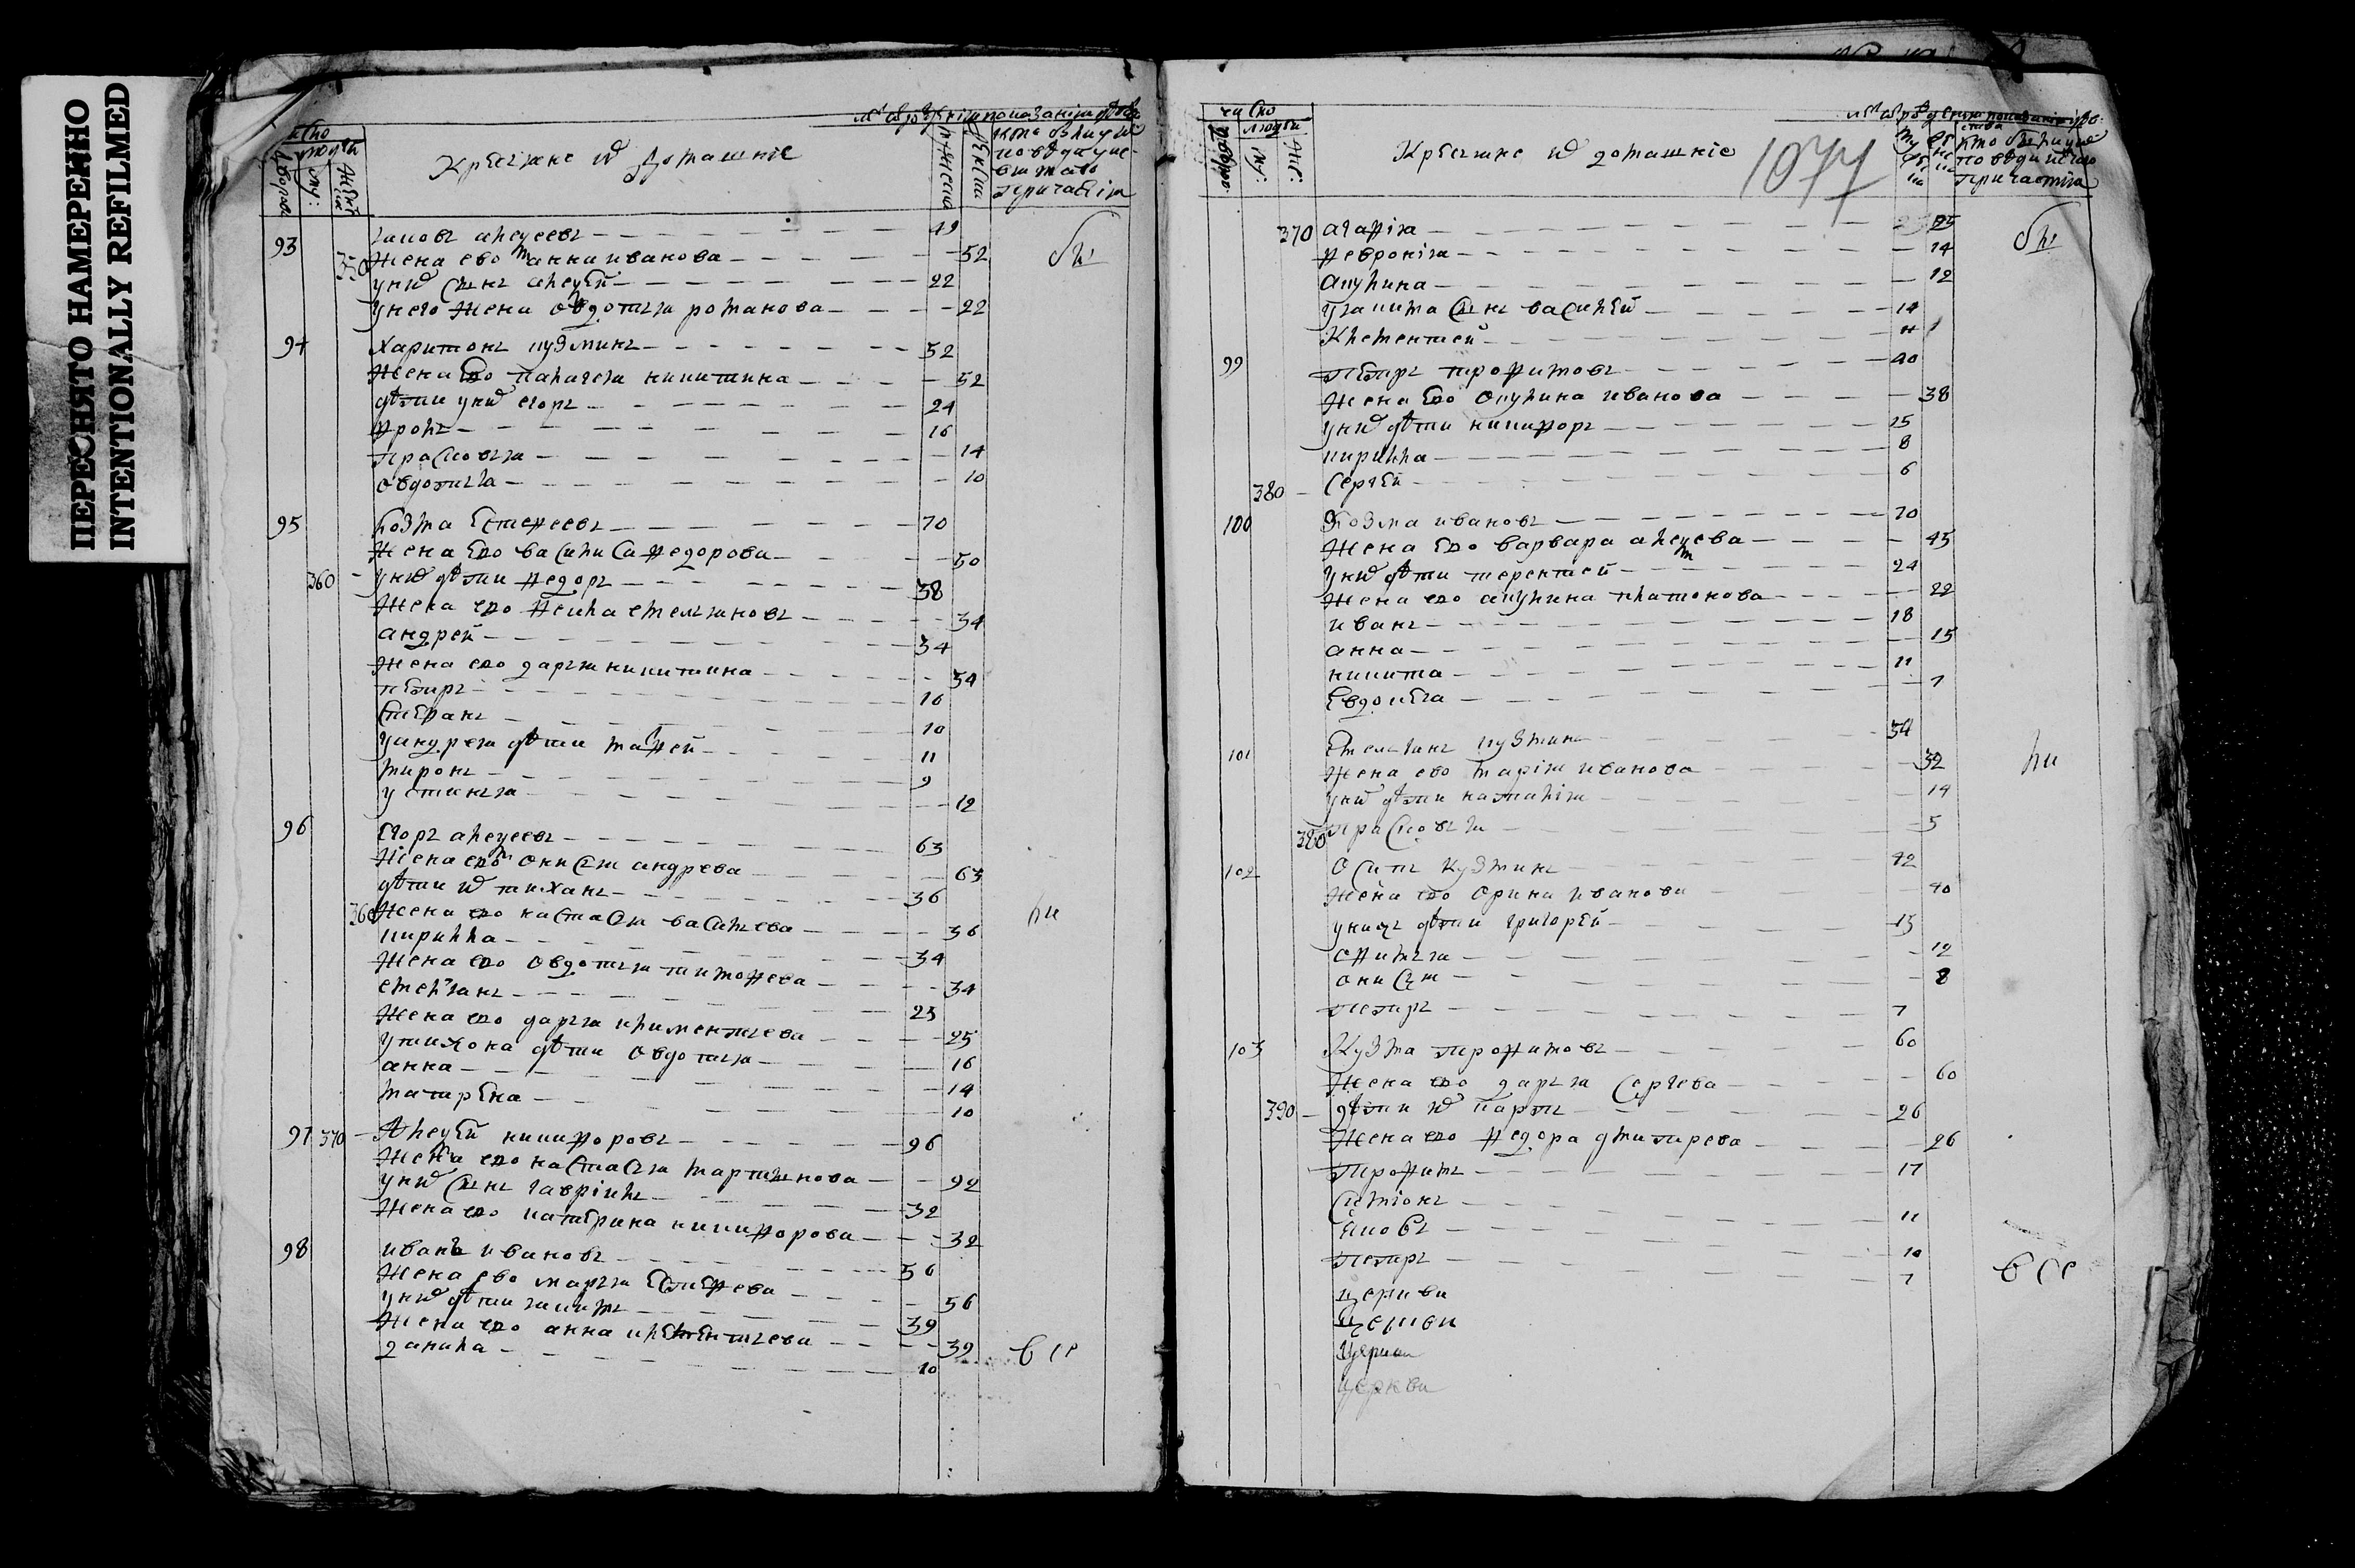 ПЕРЕСНЯТО НАМЕРЕННО
INTENTIONALLY REFILMED
число
людей
дворовъ
му:
женск
Крестьяне и домашніе
93
яковъ алексеевъ 49
350 жена ево анна иванова 52
у них сынъ алексей 22
у него жена овдотья романова 22
94 харитонъ кузминъ 52
жена ево палагея никитина 52
дети у них егоръ 24
фролъ 16
прасковья 14
овдотья 10
95 козма естефеевъ 70
жена ево василиса федорова 50
360 у них дети федоръ 38
жена ево фекла емельянова 34
андрей 34
жена ево дарья никитина 34
петръ 16
степанъ 10
у андрея дети матфей 11
миронъ 9
устинья 12
96 егоръ алексеевъ 63
жена ево онисья андреева 63
дети их тиханъ 36
360 жена ево настасья васильева 36
кирилла 34
жена ево овдотья тимофеева 34
емельянъ 25
жена ево дарья климентьева 25
у тихона дети овдотья 16
анна 14
матрена 10
97 370 алексей никифоровъ 96
жена ево настасья мартынова 92
у них сынъ гаврилъ 32
жена ево катерина никифорова 32
98 иванъ ивановъ 56
жена ево марья естифеева 56
у них дети якимъ 39
жена ево анна клементьева 39
данила 10
бы
ли
все
число
людей
дворов
му:
же:
Крестьяне и домашніе
1077
370 агафія 25
февронія 14
акулина 12
у якима сынъ василей 14
Клементей
99 петръ трофимовъ 40
жена ево окулина иванова 38
у них дети никифоръ 15
кирилла 8
380 сергей 6
100 Козма ивановъ 70
жена ево варвара алексеева 45
у них дети терентей 24
жена ево акулина платонова 22
иванъ 18
анна 15
никита 11
евдокея 7
101 Емельянъ кузминъ 34
жена ево марія иванова 32
у них дети наталія 14
380 прасковья 5
102 осипъ кузминъ 42
жена ево орина иванова 40
у них дети григорей 15
офимья 12
онисья 8
петръ 7
103 Кузма трофимовъ 60
жена ево дарья сергева 60
390 дети их карпъ 26
жена ево федора дмитрева 26
трофимъ 17
симіонъ 11
яковъ 10
петръ 7
церкви
церкви
церкви
церкви
бы
ли
все